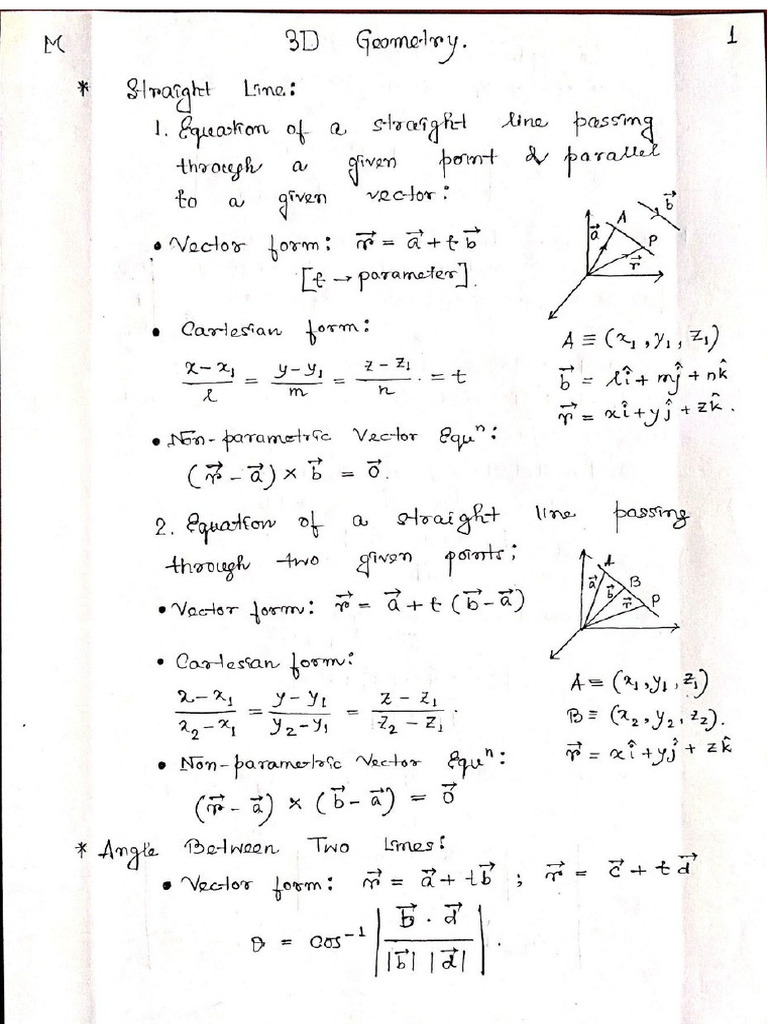 M 3D Geometry. 1
* Straight Line:
1. Equation of a straight line passing
through a given point & parallel
to a given vector:
• Vector form: r⃗ = a⃗ + t b⃗
[t → parameter].
a⃗ A P r⃗ b⃗
• Cartesian form:
(x-x₁)/l = (y-y₁)/m = (z-z₁)/n = t
A ≡ (x₁, y₁, z₁)
b⃗ = lî + mĵ + nk̂
r⃗ = xî + yĵ + zk̂.
• Non-parametric Vector Equⁿ:
(r⃗ - a⃗) × b⃗ = 0⃗.
2. Equation of a straight line passing
through two given points;
• Vector form: r⃗ = a⃗ + t (b⃗ - a⃗)
a⃗ A b⃗ B r⃗ P
• Cartesian form:
(x-x₁)/(x₂-x₁) = (y-y₁)/(y₂-y₁) = (z-z₁)/(z₂-z₁).
A ≡ (x₁, y₁, z₁)
B ≡ (x₂, y₂, z₂).
r⃗ = xî + yĵ + zk̂
• Non-parametric Vector Equⁿ:
(r⃗ - a⃗) × (b⃗ - a⃗) = 0⃗
* Angle Between Two Lines:
• Vector form: r⃗ = a⃗ + t b⃗ ; r⃗ = c⃗ + t d⃗
θ = cos⁻¹ |(b⃗ · d⃗)/(|b⃗| |d⃗|)|.